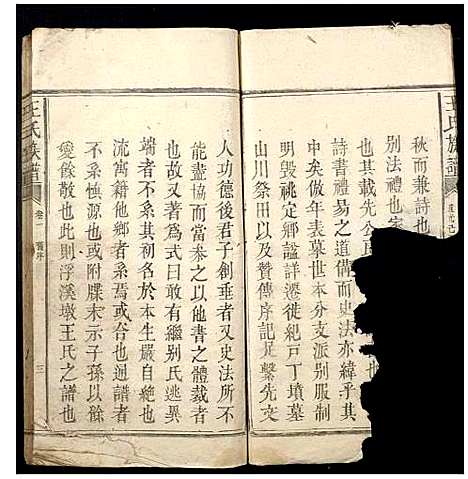 王氏族譜
秋而兼詩也
別法禮也家
其載先公
詩書禮易之道備而史法亦緯乎其
中矣故原世本本支派別服制
明毀祧御謚詳遷徙紀戸丁墳墓
山川祭田以及贊傳序記并繫先文
人功德後君子創垂者又史法所不
能盡協而當叅之以他書之體裁者
也故又著為式曰敢有繼別氏逃異
端者不系其初名於本生嚴自絶也
流寓籍他鄉者系焉或合也通譜者
不系慎源也或附牒末示子孫以餘
變餘散也此則浮溪墩王氏之譜也
王氏族譜
卷一
三